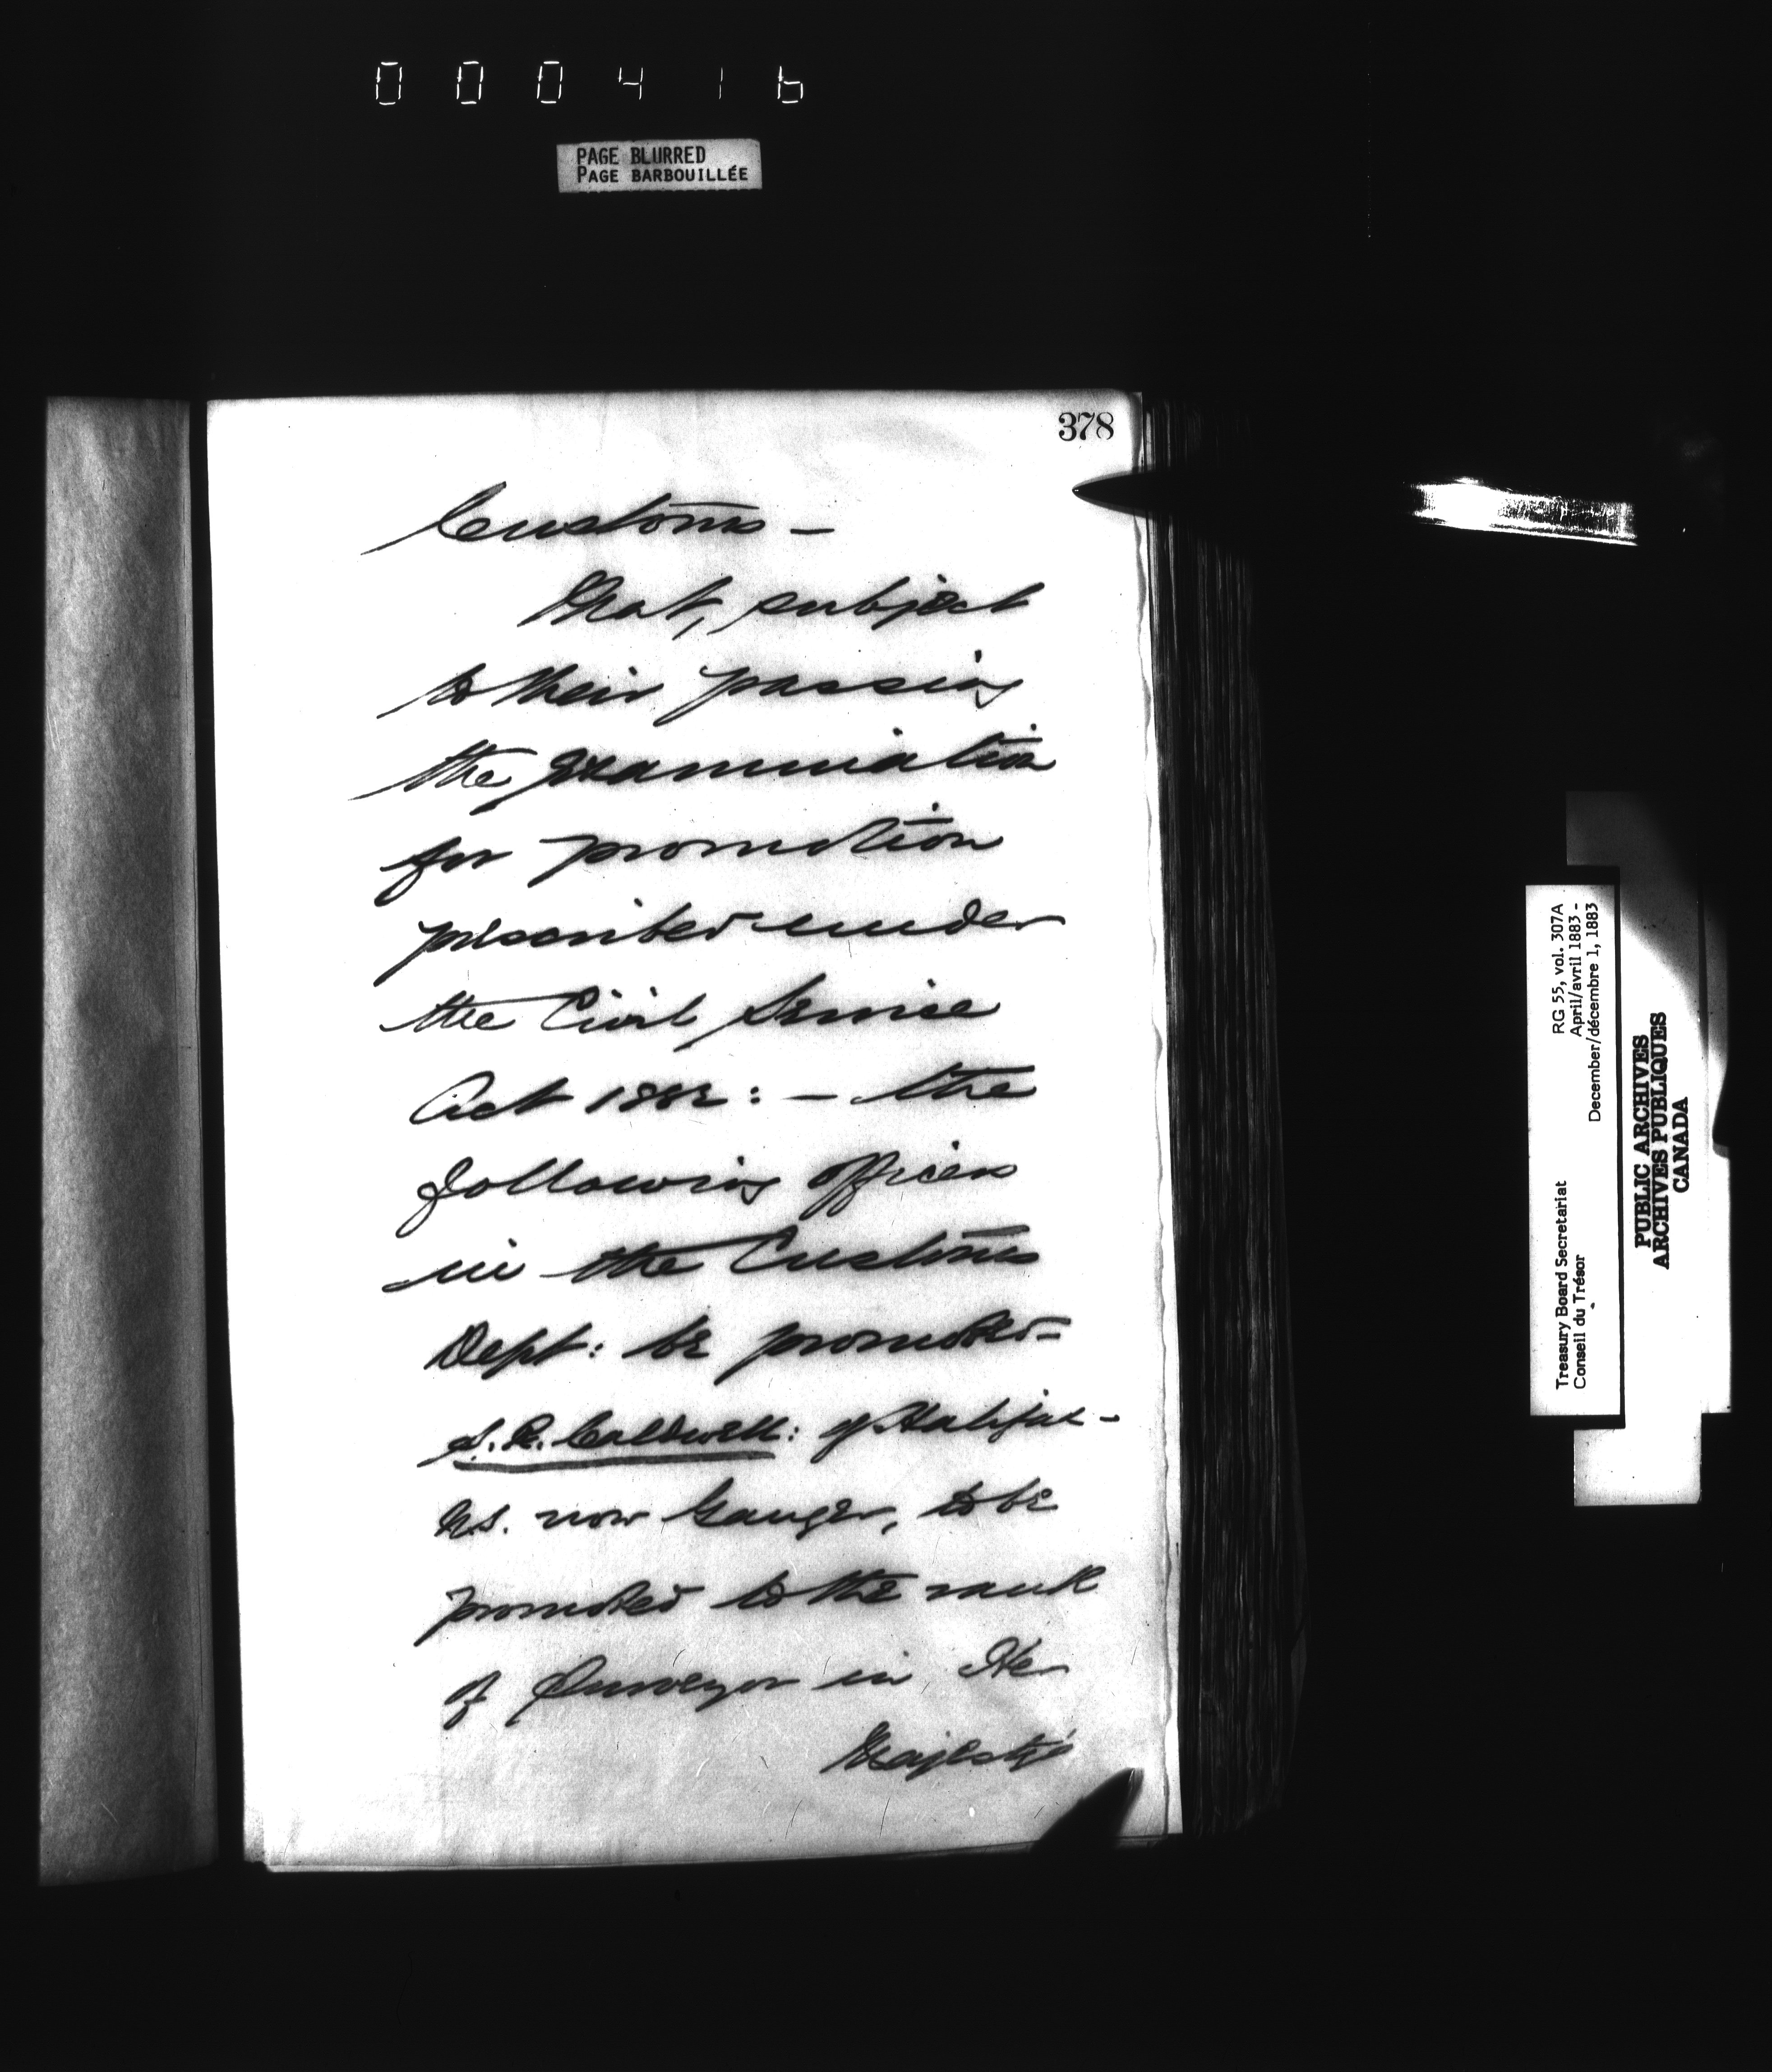 000416
PAGE BLURRED
PAGE BARBOUILLÉE
378
Customs —
That, subject
to their passing
the examination
for promotion
prescribed under
the Civil Service
Act 1882: — the
following officers
in the Customs
Dept: be promoted —
S. R. Caldwell: of Halifax —
N.S. now Gauger, to be
promoted to the rank
of Surveyor in Her
Majesty's
Treasury Board Secretariat RG 55, vol. 307A
Conseil du Trésor April/avril 1883 -
December/décembre 1, 1883
PUBLIC ARCHIVES
ARCHIVES PUBLIQUES
CANADA